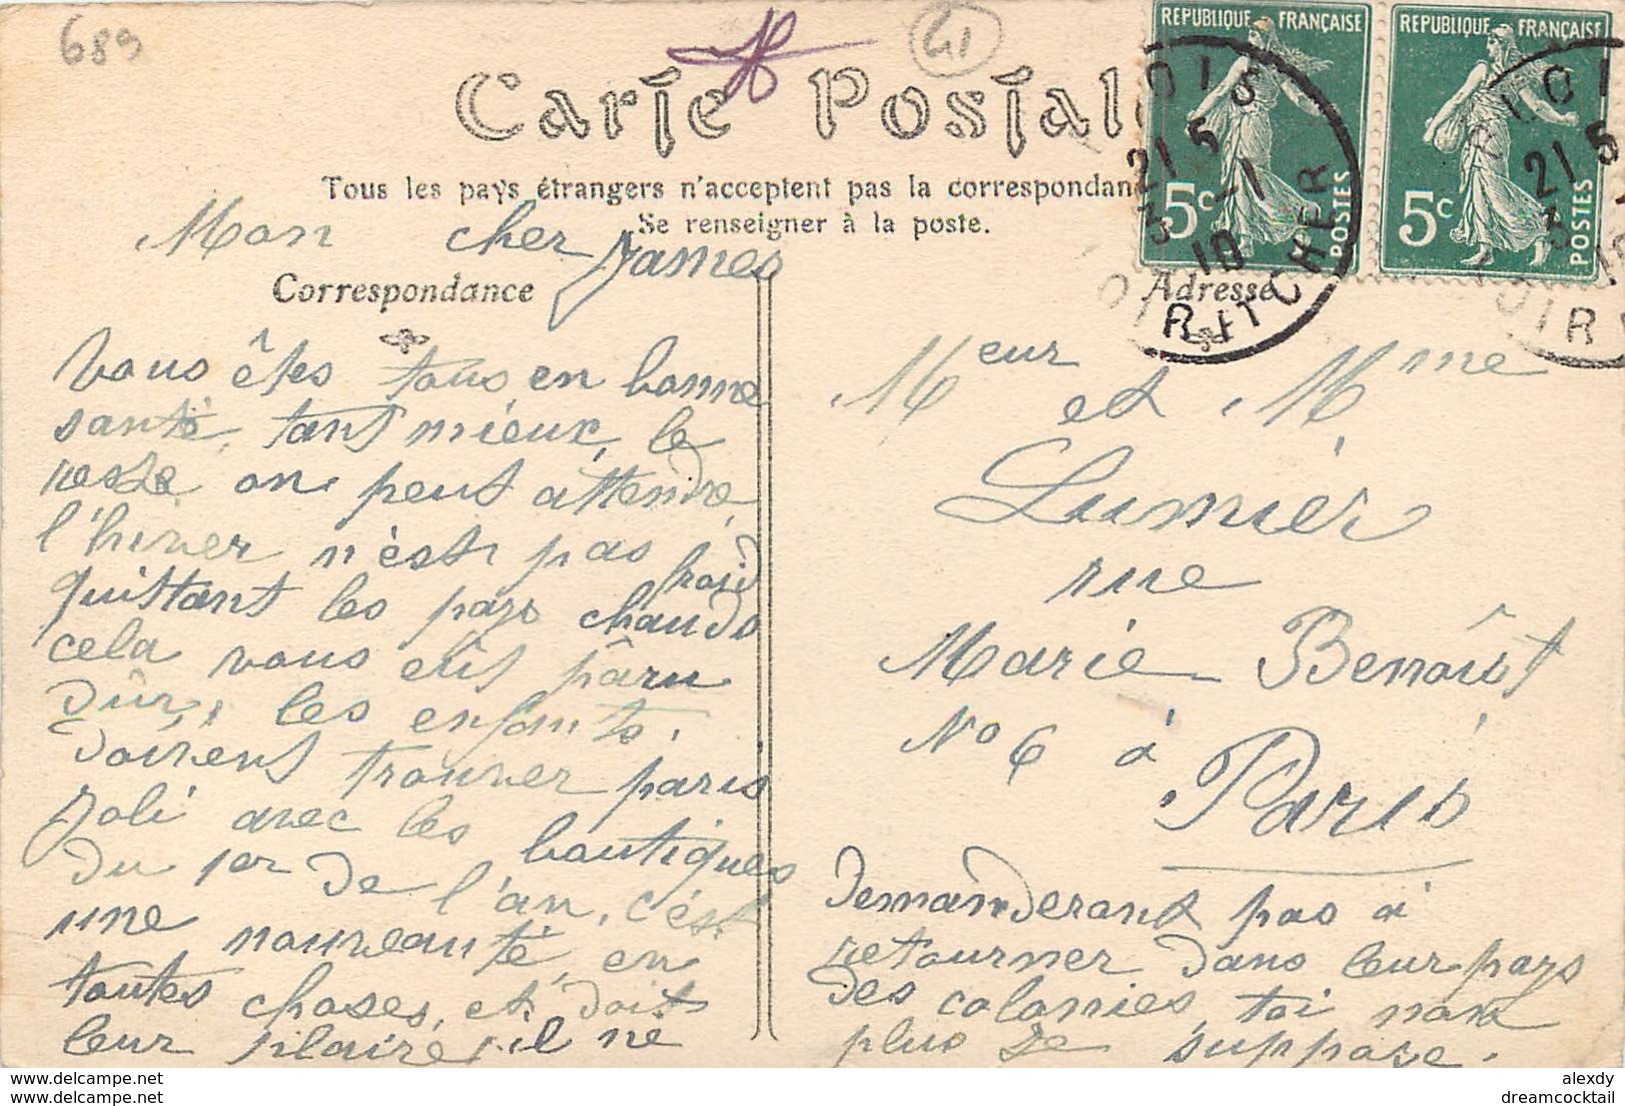 689
21
Carte Postale
REPUBLIQUE FRANÇAISE
5c
POSTES
REPUBLIQUE FRANÇAISE
5c
POSTES
21 5
3 -1
10
LOIR ET CHER
21 5
3
10
LOIR
Tous les pays étrangers n'acceptent pas la correspondan
Se renseigner à la poste.
Correspondance
Adresse
Mon cher James
Vous êtes tous en bonne
santé, tant mieux, le
reste on peut attendre,
l'hiver n'est pas froid
quittant les pays chauds
cela vous eût pâru
dûr, les enfants.
doivent trouver paris
Joli avec les boutiques
du 1er de l'an, c'est
une nouveauté, en
toutes choses, et doit
leur plaire, il ne
Meur et Mme
Lumier
rue
Marie Benôist
No 6 à
Paris
demanderont pas à
retourner dans leur pays
des colonies, toi non
plus je suppose.
alexdy
www.delcampe.net
dreamcocktail